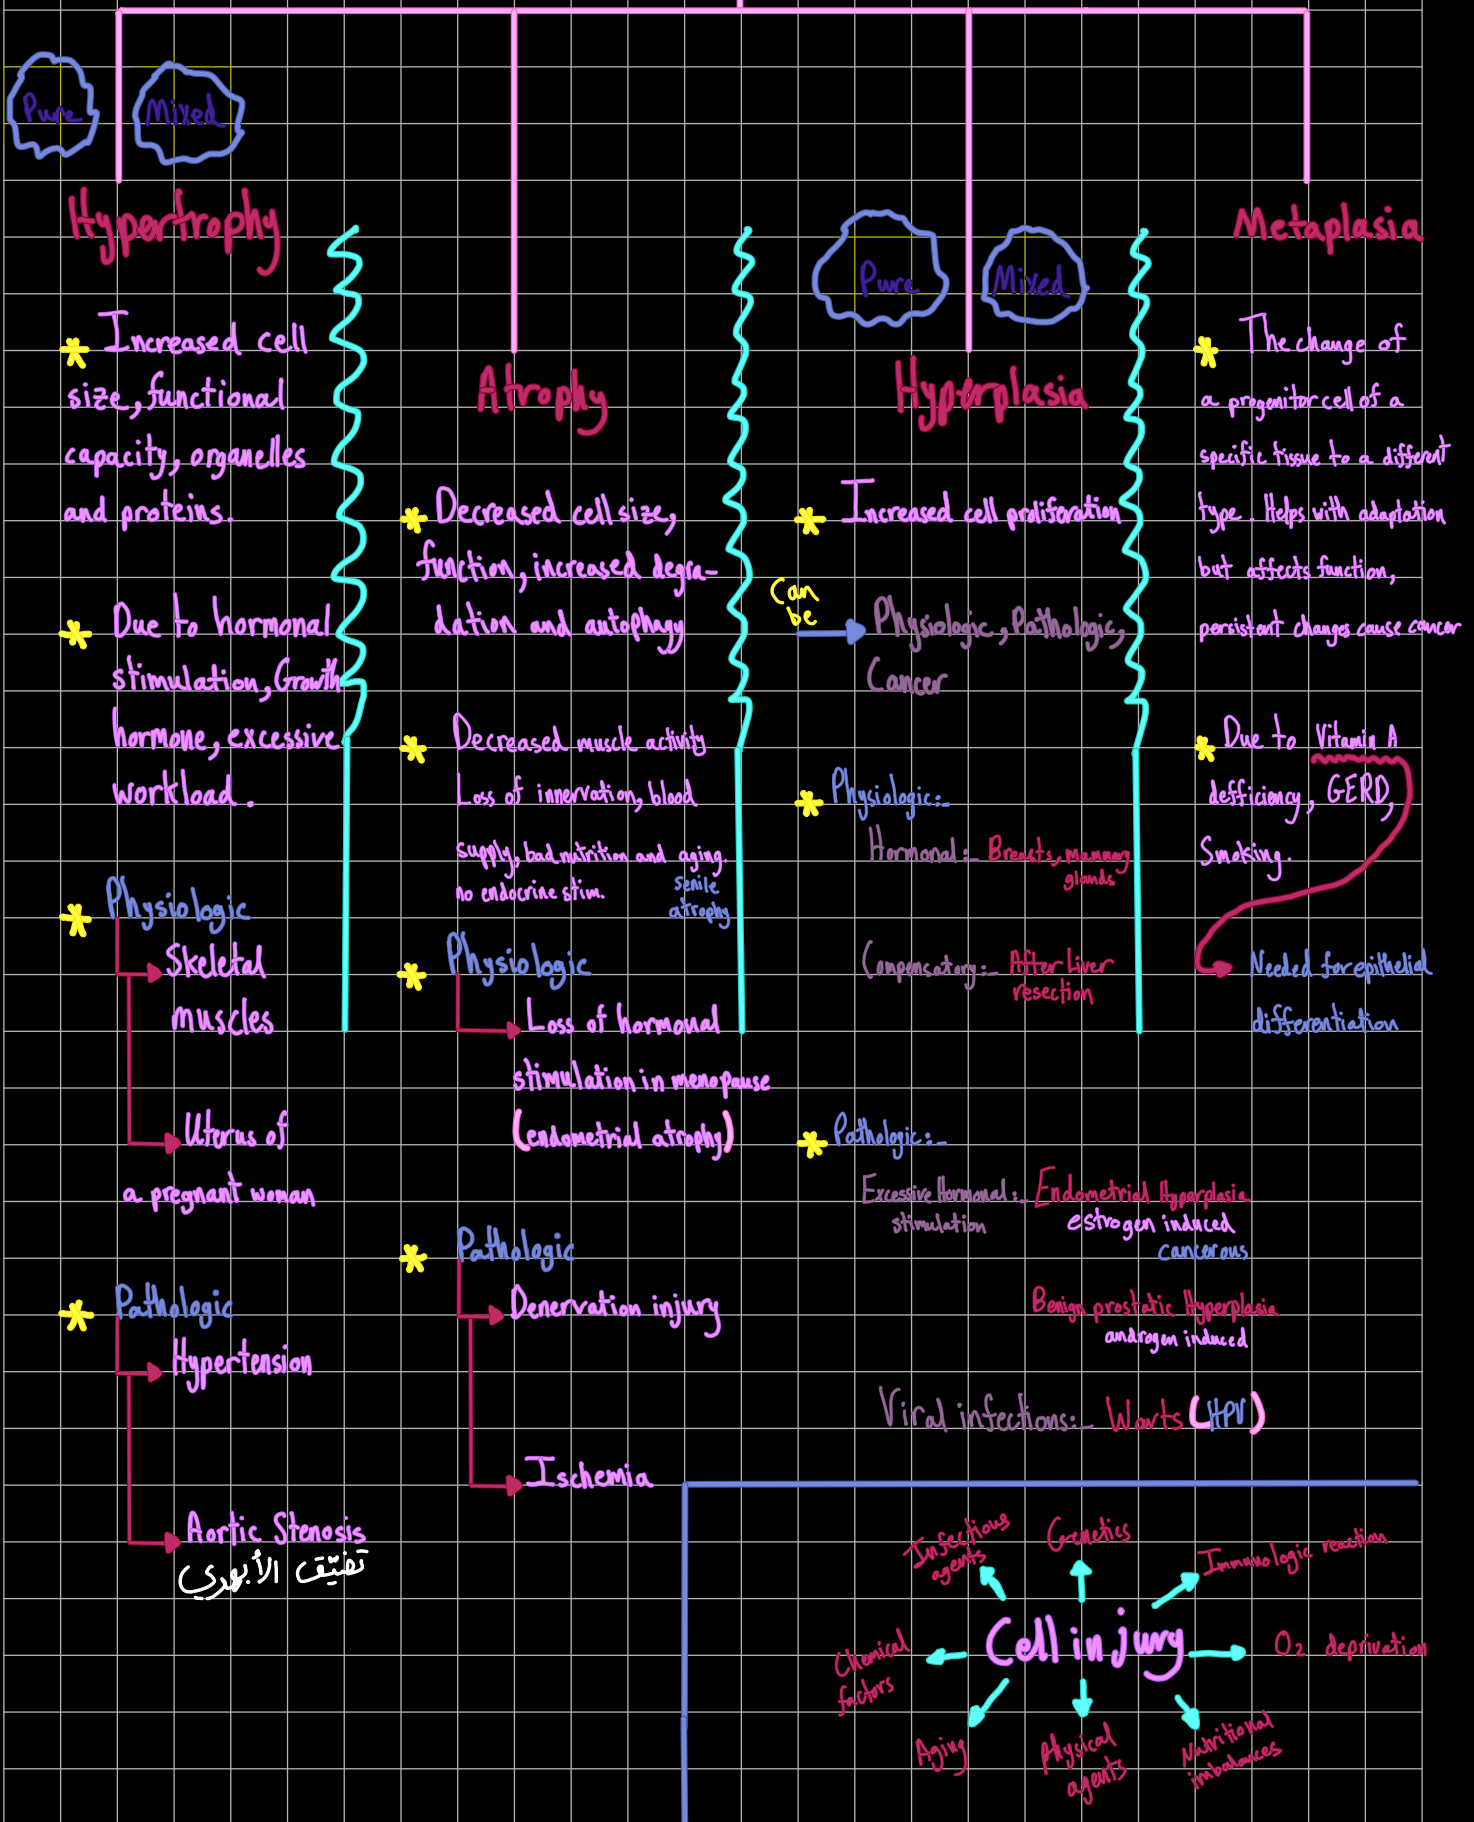 Pure
Mixed
Hypertrophy
* Increased cell
size, functional
capacity, organelles
and proteins.
* Due to hormonal
stimulation, Growth
hormone, excessive
workload.
* Physiologic
Skeletal
muscles
Uterus of
a pregnant woman
* Pathologic
Hypertension
Aortic Stenosis
تضيّق الأبهري
Atrophy
* Decreased cell size,
function, increased degra-
dation and autophagy
* Decreased muscle activity
Loss of innervation, blood
supply, bad nutrition and aging.
no endocrine stim.
senile
atrophy
* Physiologic
Loss of hormonal
stimulation in menopause
(endometrial atrophy)
* Pathologic
Denervation injury
Ischemia
Pure
Mixed
Hyperplasia
* Increased cell proliferation
Can
be
Physiologic, Pathologic,
Cancer
* Physiologic:-
Hormonal:- Breasts, mammary
glands
Compensatory:- After Liver
resection
* Pathologic:-
Excessive Hormonal:- Endometrial Hyperplasia
stimulation
estrogen induced
cancerous
Benign prostatic Hyperplasia
androgen induced
Viral infections:- Warts (HPV)
Metaplasia
* The change of
a progenitor cell of a
specific tissue to a different
type. Helps with adaptation
but affects function,
persistant changes cause cancer
* Due to Vitamin A
defficiency, GERD,
Smoking.
Needed for epithelial
differentiation
Cell injury
Infectious
agents
Genetics
Immunologic reaction
O2 deprivation
Nutritional
imbalances
Physical
agents
Aging
Chemical
factors